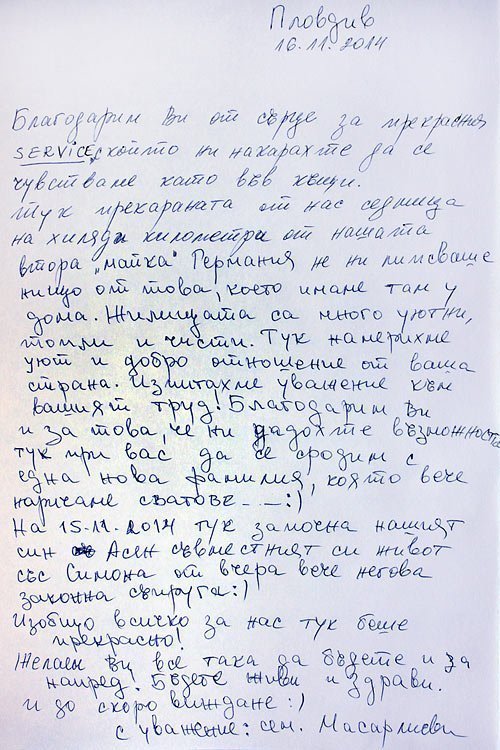 Пловдив
16.11.2014
Благодарим Ви от сърце за прекрасния
SERVICE, с който ни накарахте да се
чувстваме като във къщи.
Тук прекараната от нас седмица
на хиляди километри от нашата
втора „майка" Германия не ни липсваше
нищо от това, което имаме там у
дома. Жилищата са много уютни,
топли и чисти. Тук намерихме
уют и добро отношение от ваша
страна. Изпитахме уважение към
вашият труд! Благодарим Ви
и за това, че ни дадохте възможността
тук при вас да се сродим с
една нова фамилия, която вече
наричаме сватове - - :)
На 15.11.2014 тук започна нашият
син Асен съвместният си живот
със Симона от вчера вече негова
законна съпруга :)
Изобщо всичко за нас тук беше
прекрасно!
Желаем Ви все така да бъдете и за
напред! Бъдете живи и здрави.
и до скоро виждане :)
с уважение: сем. Масарлиеви